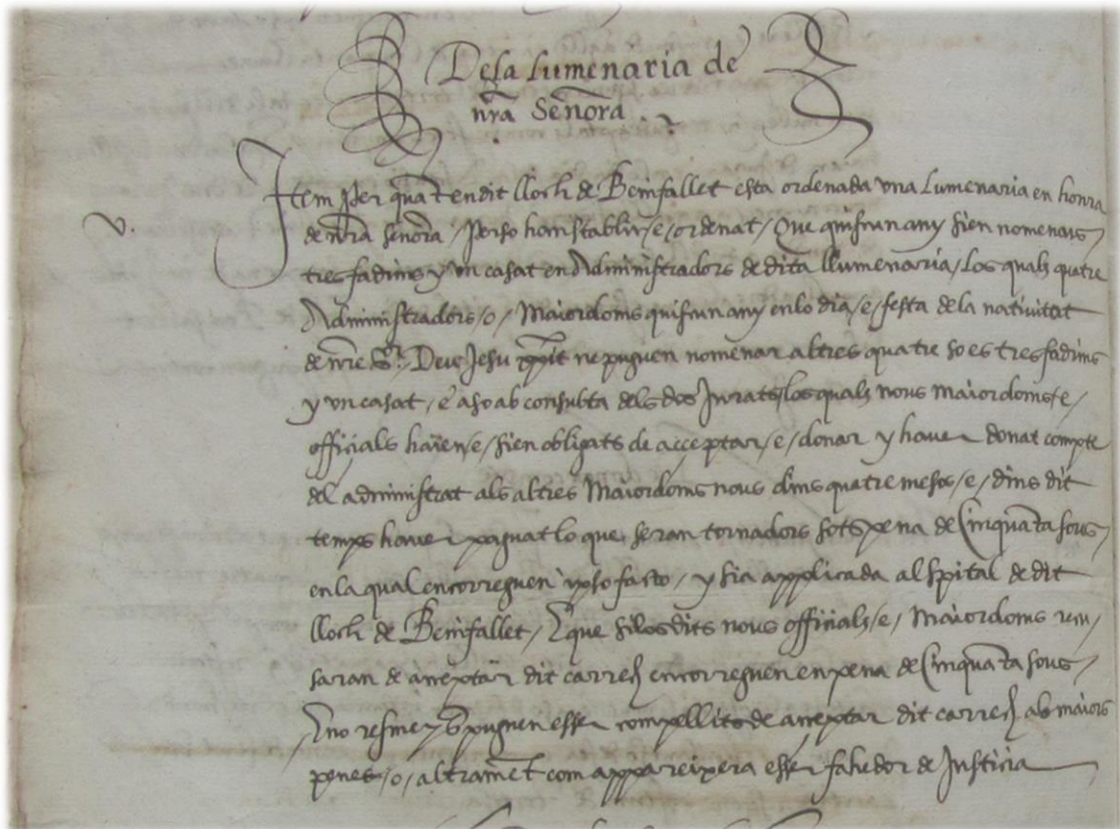 Dela lumenaria de
nra Señora
V.
Item per quāt en dit lloch de Benifallet esta ordenada vna Lumenaria en honra
de nra señora / perso han stablit /e/ ordenat / Que quiscun any sien nomenats /
tres fadrins y vn casat en Administradors de dita llumenaria / los quals quatre
Administradors /o/ Maiordoms quiscun any en lo dia /e/ festa de la natiuitat
de nre Sr. Deus Jesu xpist ne puguen nomenar altres quatre so es tres fadrins
y vn casat / e aso ab consulta dels dos Jurats / los quals nous maiordoms /e/
officials haien /e/ sien obligats de acceptar /e/ donar y hauer donat compte
del administrat als altres Maiordoms nous dins quatre mesos /e/ dins dit
temps hauer paguat lo que seran tornadors sots pena de Cinquāta sous /
en la qual encorreguen ypso facto / y sia applicada al spital de dit
lloch de Benifallet / E que si los dits nous officials /e/ Maiordoms recu /
saran de acceptar dit carrech encorreguen en pena de Cinquāta sous /
E no resmeys puguen esser compellits de acceptar dit carrech ab maiors
penes /o/ altramēt com appareixera esser fahedor de Justicia